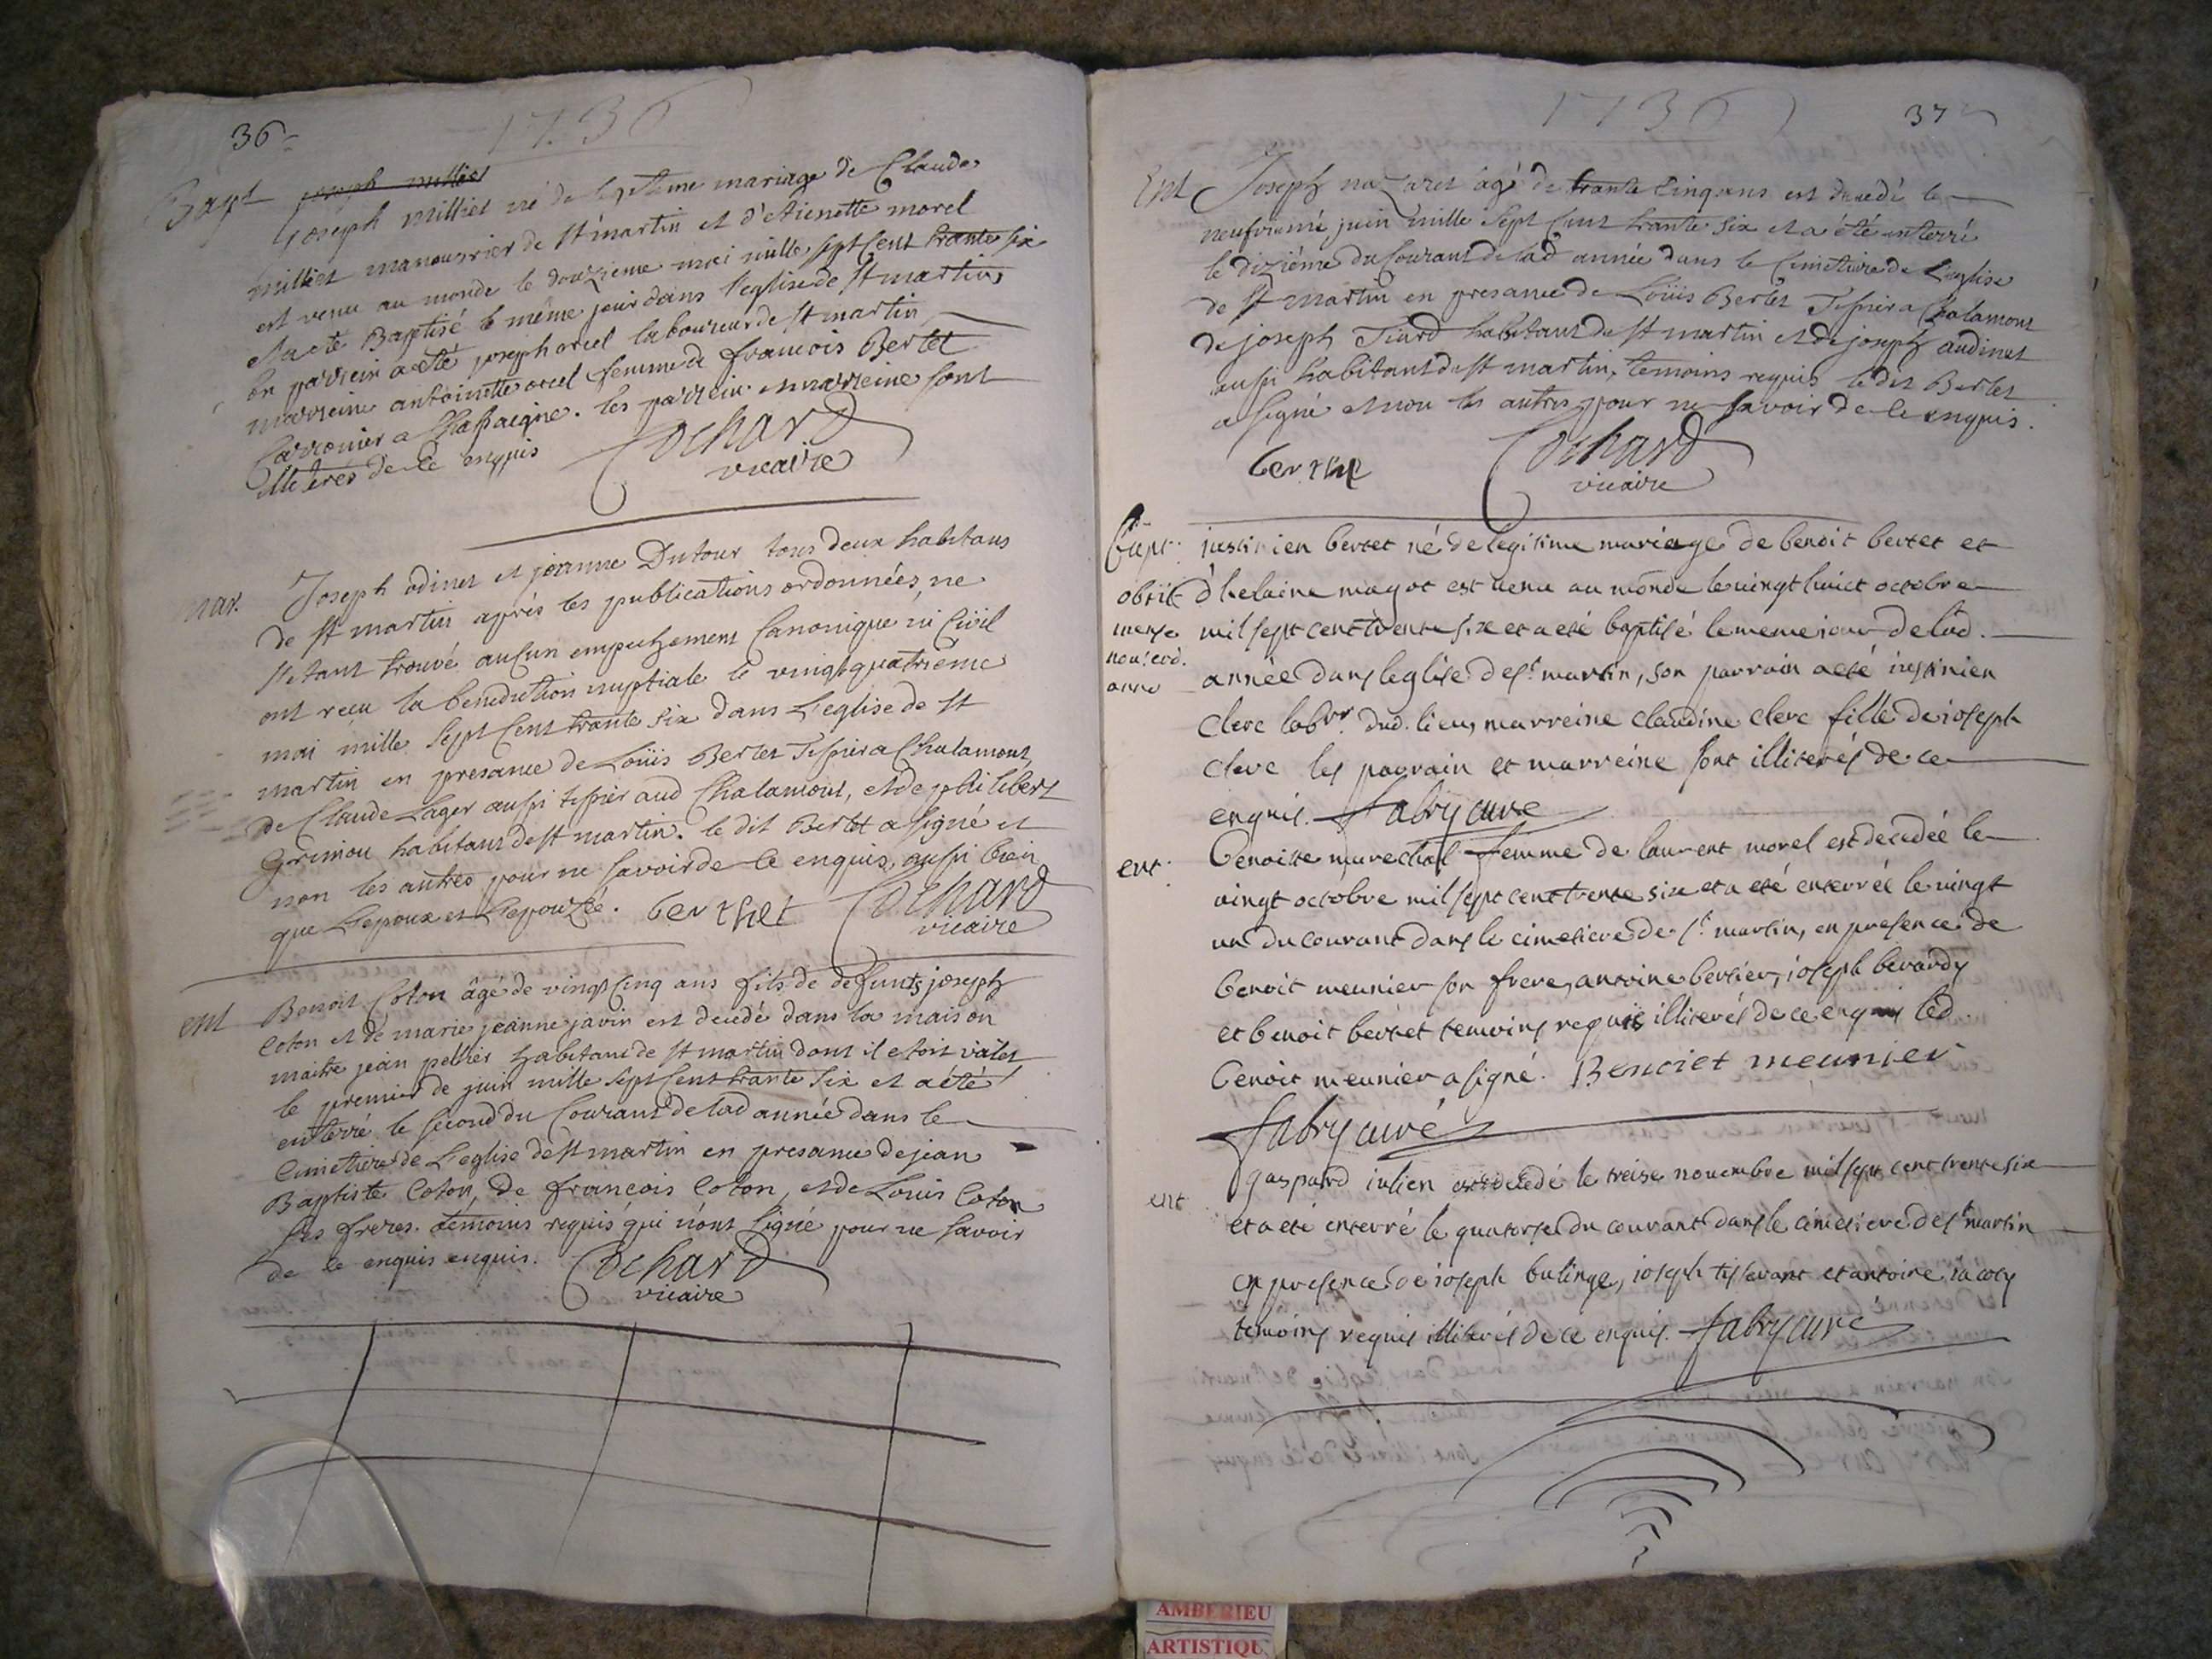 36
1736
Bapt joseph milliet
joseph milliet né de legitime mariage de Claude
milliet manouvrier de st martin et d'etienette morel
est venu au monde le douzieme mai mille sept cent trante six
et a eté Baptisé le même jour dans l'eglise de st martin
son parrein a eté joseph orcel laboureur de st martin
marreine antoinette orcel femme de francois Bertet
carronier a Chassaigne. les parrein et marreine sont
illiterés de ce enquis
Cochard
vicaire
mar. Joseph odinet et jeanne Dutour tous deux habitans
de st martin après les publications ordonnées, ne
s'etant trouvé aucun empechement Canonique ni Civil
ont recu la benediction nuptiale le vingt quatrième
mai mille sept Cent trante six dans L'eglise de st
martin en presance de Loüis Bertet Tissier a Chalamont,
de Claude Lager aussi tissier aud Chalamont, et de philibert
Grimou habitant de st martin. le dit Bertet a signé et
non les autres pour ne savoir de ce enquis, aussi bien
que L'epoux et L'epouzée. berthet Cochard
vicaire
ent Benoit Coton âgé de vingt Cinq ans fils de defunts joseph
Coton et de marie jeanne javin est decedé dans la maison
maitre jean peltier habitant de st martin dont il etoit valet
le premier de juin mille sept Cent trante six et a été
enterré le second du Courant de lad année dans le
Cimetiere de L'eglise de st martin en presance de jean
Baptiste Coton, de francois Coton, et de Louis Coton
ses freres. temoins requis qui n'ont signé pour ne savoir
de ce enquis enquis. Cochard
vicaire
1736
37
Ent Joseph nazaret âgé de trante Cinq ans est decedé le
neufviemé juin mille sept Cent trante six et a été enterré
le dizième du Courant de lad année dans le Cimetiere de L'eglise
de st martin en presance de Loüis Bertet Tissier a Chalamont
de joseph Tiard habitant de st martin et de joseph audinet
aussi habitant de st martin, temoins requis le dit Bertet
a signé et non les autres pour ne savoir de ce enquis.
Cochard
vicaire
bapt. justinien bertet né de legitime mariage de benoit bertet et
obiit d'helaine magot est venu au monde le vingt huict octobre
mense mil sept cent trente six et a eté baptisé le meme iour de lad.
anno année dans leglise de st martin, son parrain a eté iustinien
Clerc labvr. dud. lieu, marreine Claudine clerc fille de ioseph
Clerc les parrain et marreine sont illiterés de ce
enquis. fabry curé
ent. Benoite marechal femme de laurent morel est decedée le
vingt octobre mil sept cent trente six et a eté enterrée le vingt
un du courant dans le cimetiere de st martin, en presence de
benoit meunier son frere, antoine bertier, ioseph berardy
et benoit bertet temoins requis illiterés de ce enquis led.
benoit meunier a signé. Benoiet meunier
fabry curé
ent gaspard iulien est decedé le treise novembre mil sept cent trente six
et a eté enterré le quatorse du courant dans le cimetiere de st martin
en presence de ioseph bulinge, ioseph tisserant et antoine iacoty
temoins requis illiterés de ce enquis. fabry curé
AMBERIEU
ARTISTIQU